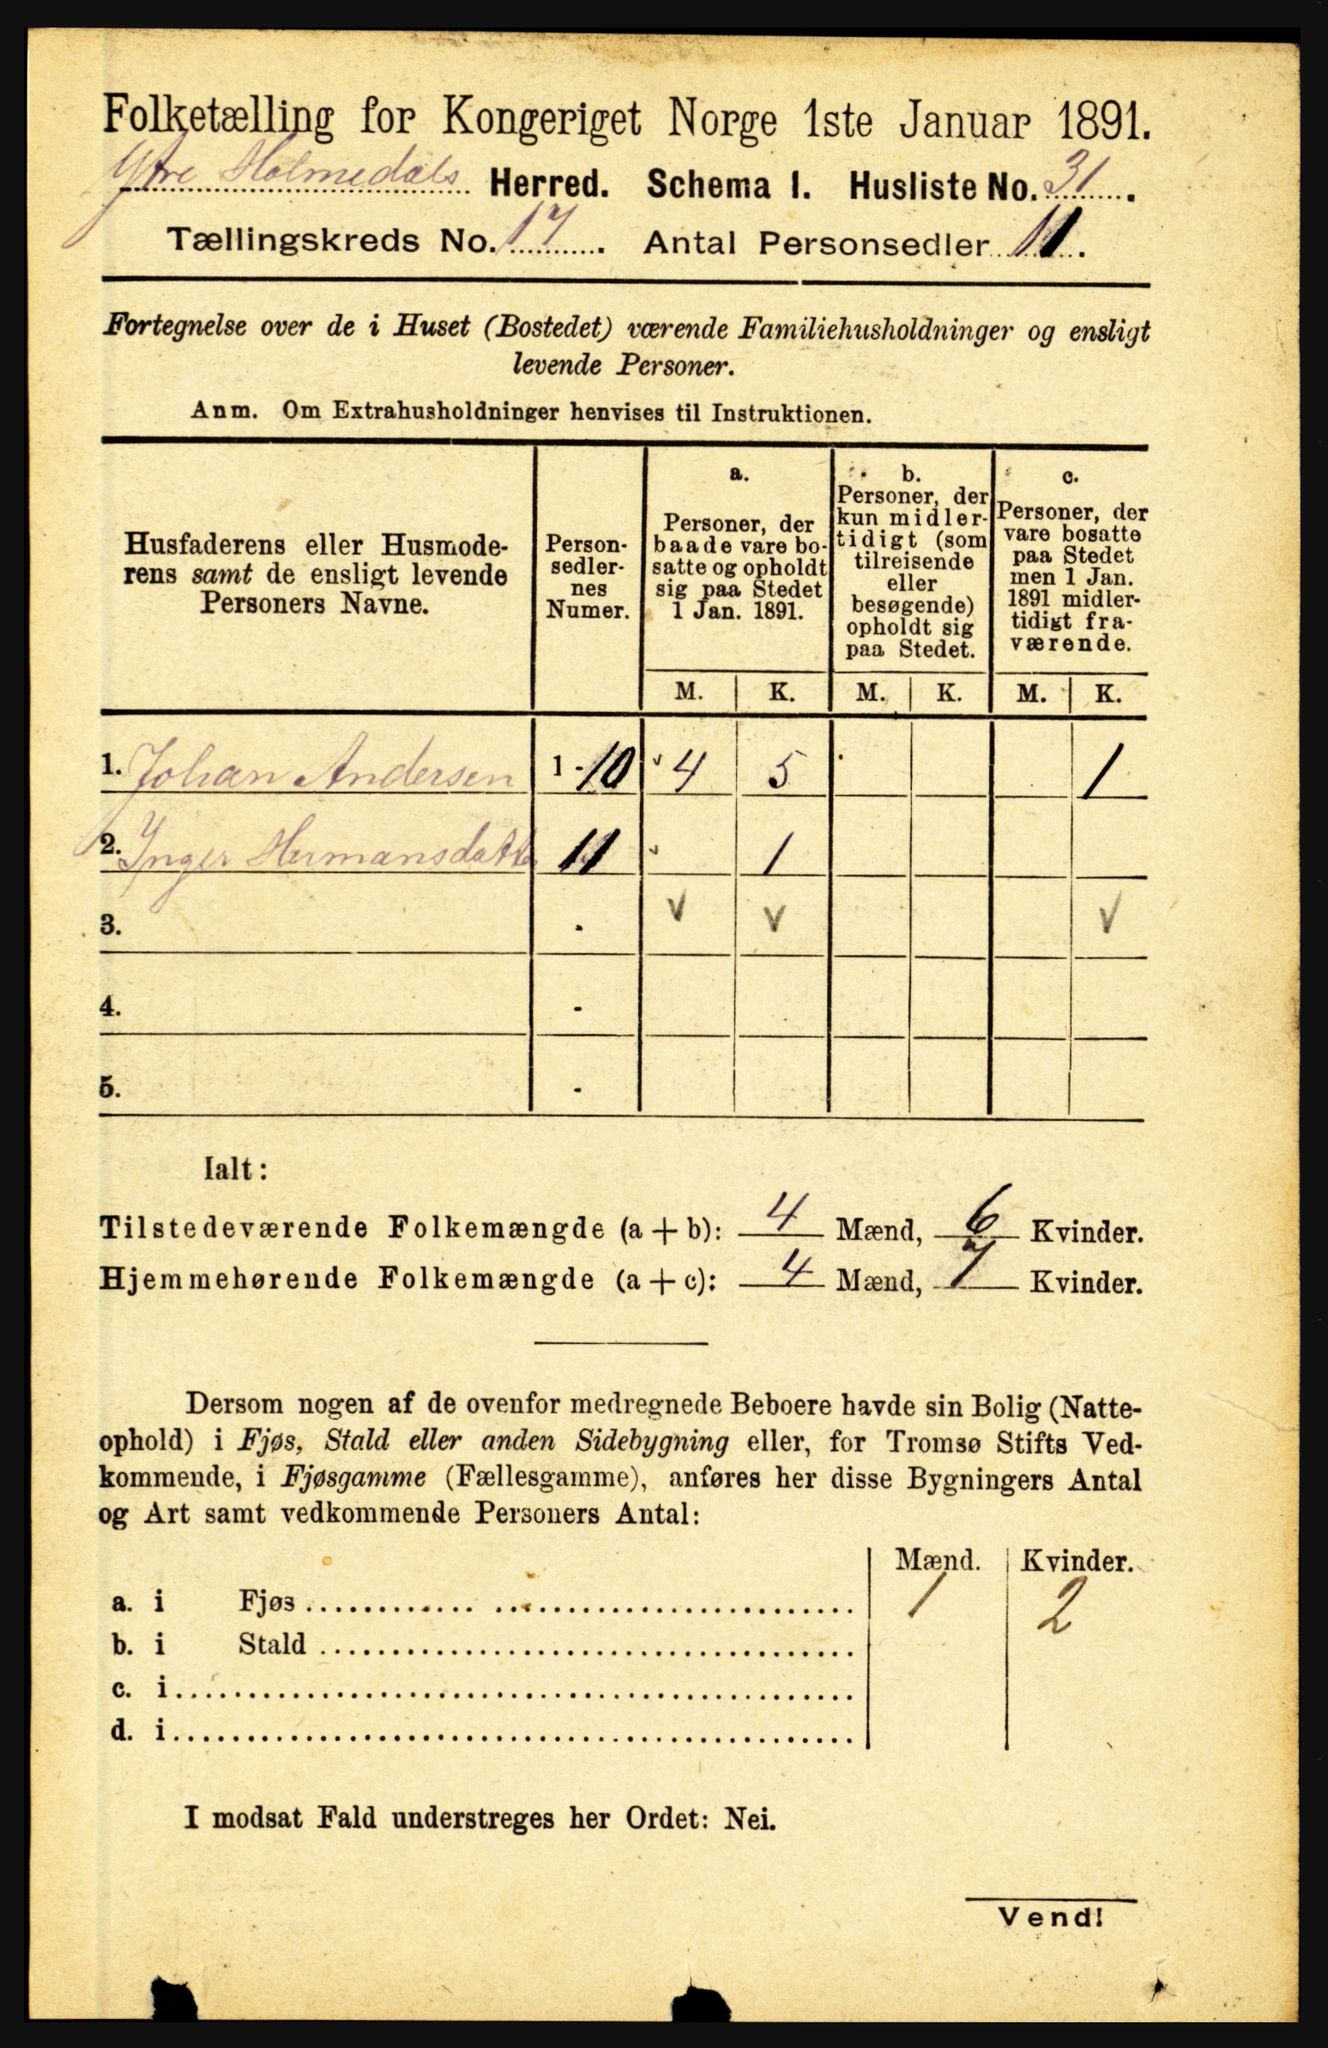 Folketælling for Kongeriget Norge 1ste Januar 1891.
Ytre Holmedals Herred. Schema I. Husliste No. 31.
Tællingskreds No. 17. Antal Personsedler 11.
Fortegnelse over de i Huset (Bostedet) værende Familiehusholdninger og ensligt
levende Personer.
Anm. Om Extrahusholdninger henvises til Instruktionen.
Husfaderens eller Husmode-
rens samt de ensligt levende
Personers Navne.
Person-
sedler-
nes
Numer.
a.
Personer, der
baade vare bo-
satte og opholdt
sig paa Stedet
1 Jan. 1891.
b.
Personer, der
kun midler-
tidigt (som
tilreisende
eller
besøgende)
opholdt sig
paa Stedet.
c.
Personer, der
vare bosatte
paa Stedet
men 1 Jan.
1891 midler-
tidigt fra-
værende.
M. K. M. K. M. K.
1. Johan Andersen 1 - 10 4 5 1
2. Inger Hermansdatter 11 1
3. -
4. -
5. -
Ialt:
Tilstedeværende Folkemængde (a + b): 4 Mænd, 6 Kvinder.
Hjemmehørende Folkemængde (a + c): 4 Mænd, 7 Kvinder.
Dersom nogen af de ovenfor medregnede Beboere havde sin Bolig (Natte-
ophold) i Fjøs, Stald eller anden Sidebygning eller, for Tromsø Stifts Ved-
kommende, i Fjøsgamme (Fællesgamme), anføres her disse Bygningers Antal
og Art samt vedkommende Personers Antal:
Mænd. Kvinder.
a. i Fjøs 1 2
b. i Stald
c. i
d. i
I modsat Fald understreges her Ordet: Nei.
Vend!